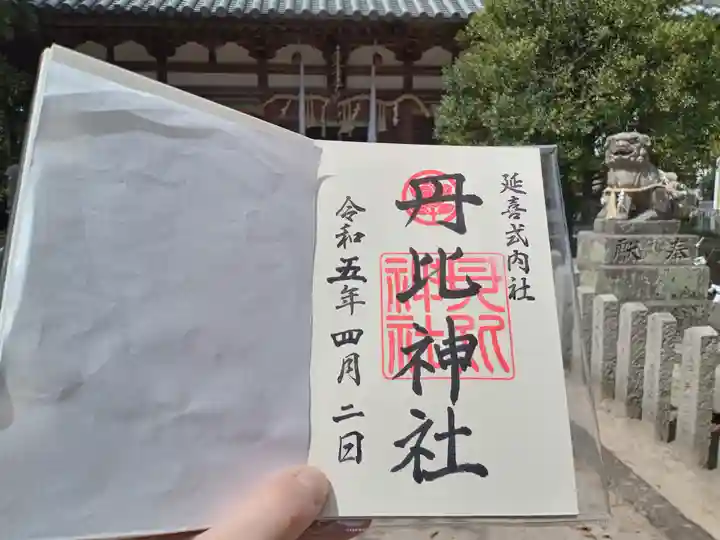 延喜式内社
丹比神社
令和五年四月二日
奉
献